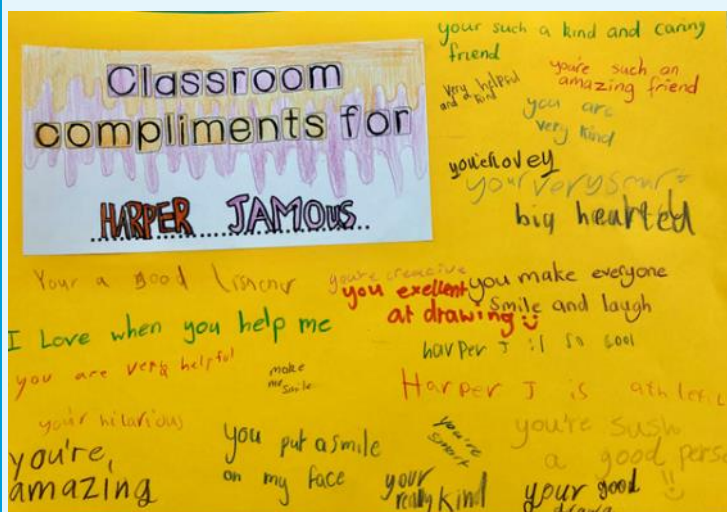 Classroom
compliments for
HARPER JAMOUS
your such a kind and caring
friend
very helpful
and a kind
you're such an
amazing friend
you are
very kind
your very smart
big hearted
Your a good listener
you're creative
you exellent
at drawing
you make everyone
smile and laugh
I Love when you help me
harper J is so cool
you are very helpful
make
me smile
Harper J is athletic
your hilarious
you're
smart
you're sush
a good perso
you put a smile
on my face
you're,
amazing
your
really kind
your good